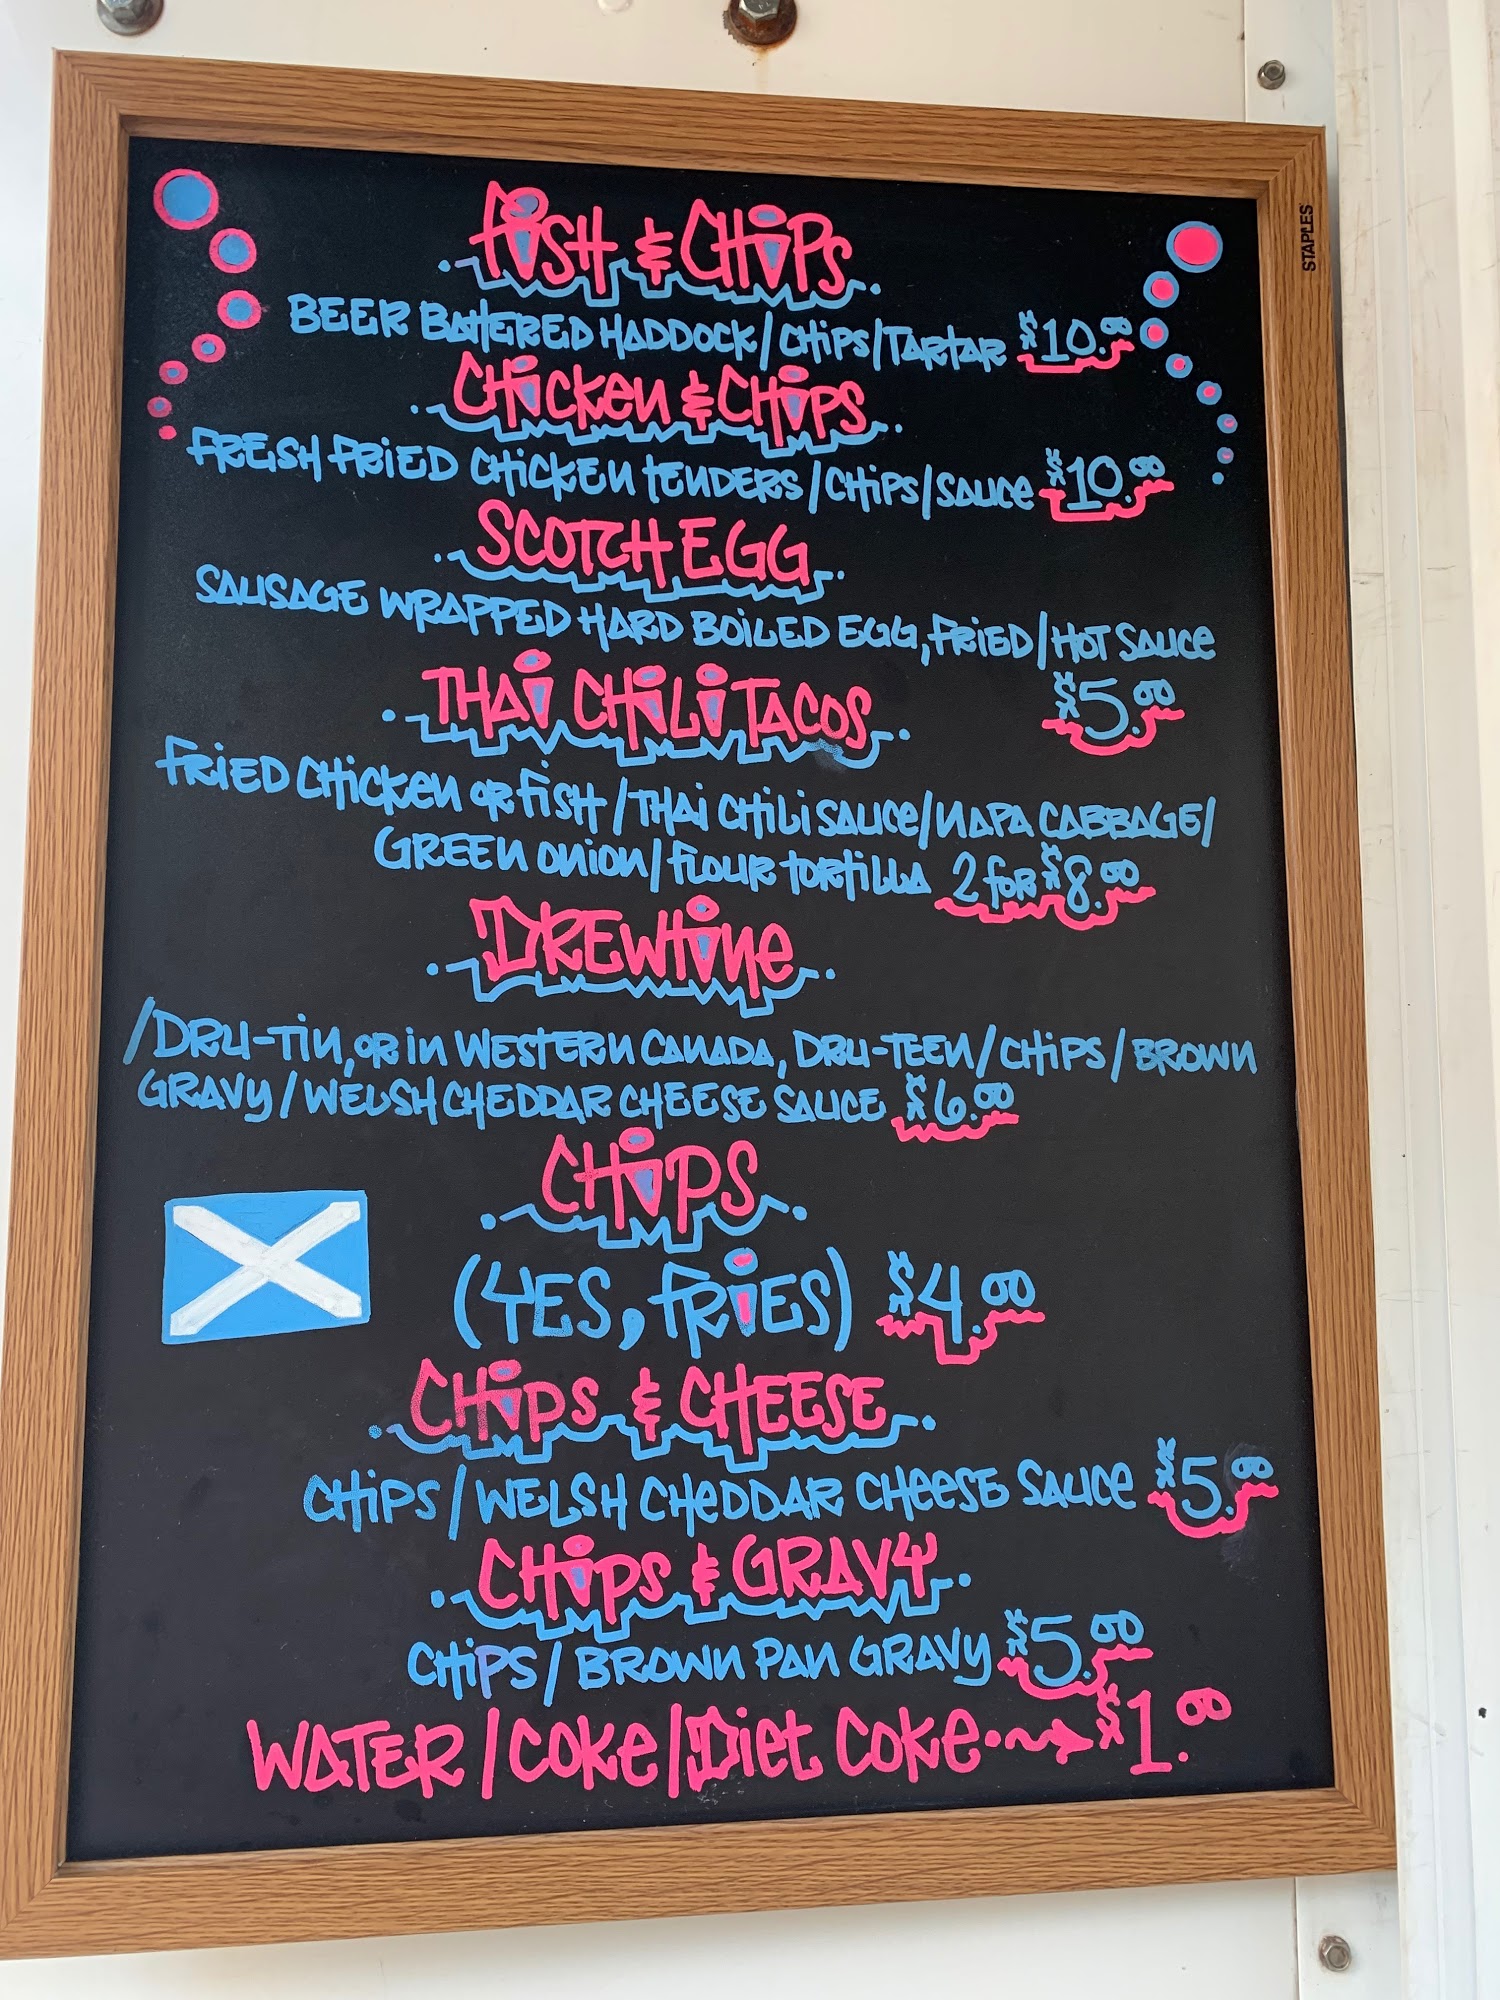 STAPLES
FiSH & CHiPS
BEER BATTERED HADDOCK/CHiPS/TARTAR $10.00
CHiCKen & CHiPS
FRESH FRiED CHiCKEN TENDERS/CHiPS/SAUCe $10.00
SCOTCH EGG
SAUSAGE WRAPPED HARD BOiLED EGG, FRiED/HOT SAUCe
$5.00
THAi CHiLi TACOS
FRiED CHiCKen OR FiSH/THAi CHiLi SAUCe/NAPA CABBAGE/
GREEN ONION/FLOUR TORTiLLA 2 for $8.00
DREWTine
/DRU-TiN, OR iN WESTERN CANADA, DRU-TEEN/CHiPS/BROWN
GRAVY/WELSH CHEDDAR CHEESE SAUCE $6.00
CHiPS
(YES, FRiES) $4.00
CHiPS & CHEESE
CHiPS/WELSH CHeDDAR CHeeSE SAUCe $5.00
CHiPS & GRAVY
CHiPS/BROWN PAN GRAVY $5.00
WATER/COKe/Diet COKe $1.00